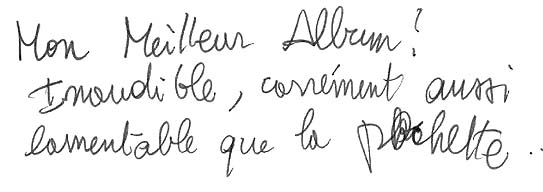 Mon Meilleur Album !
Inaudible, carrément aussi
lamentable que la pochette..